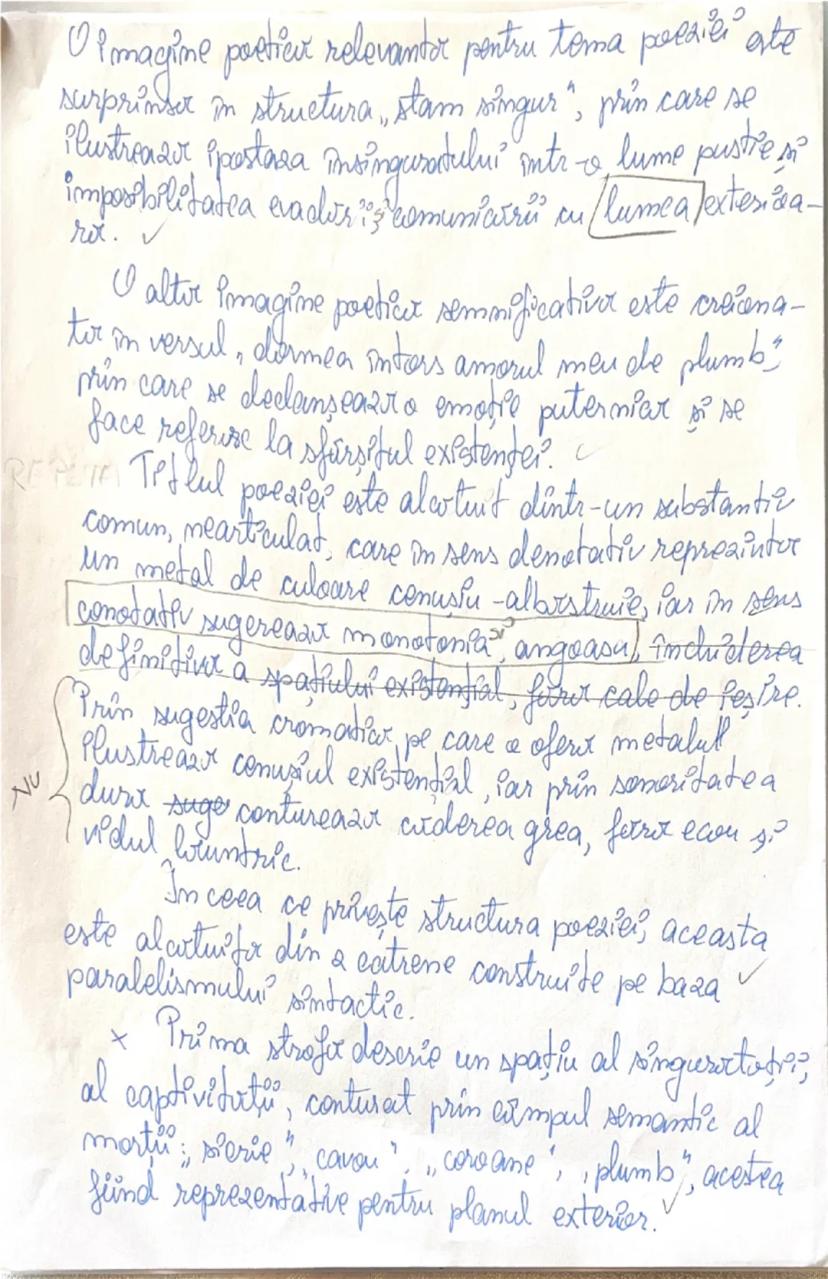 O imagine poetică relevantă pentru tema poeziei este
surprinsă în structura „stam singur", prin care se
ilustrează ipostaza însinguratului într-o lume pustie și
imposibilitatea evadării și comunicării cu lumea exterioa-
ră. ✓
O altă imagine poetică semnificativă este creiona-
tă în versul „dormea întors amorul meu de plumb"
prin care se declanșează o emoție puternică și se
face referire la sfârșitul existenței. ✓
Titlul poeziei este alcătuit dintr-un substantiv
comun, nearticulat, care în sens denotativ reprezintă
un metal de culoare cenușiu-albăstruie, iar în sens
conotativ sugerează monotonia și angoasa, închiderea
definitivă a spațiului existențial, fără cale de ieșire.
NU
Prin sugestia cromatică pe care o oferă metalul
ilustrează cenușiul existențial, iar prin sonoritatea
dură suge conturează căderea grea, fără ecou și
vidul lăuntric.
În ceea ce privește structura poeziei, aceasta
este alcătuită din 2 catrene construite pe baza ✓
paralelismului sintactic.
x Prima strofă descrie un spațiu al singurătății,
al captivității, conturat prin câmpul semantic al
morții: „sicrie", „cavou", „coroane", „plumb", acestea
fiind reprezentative pentru planul exterior. ✓